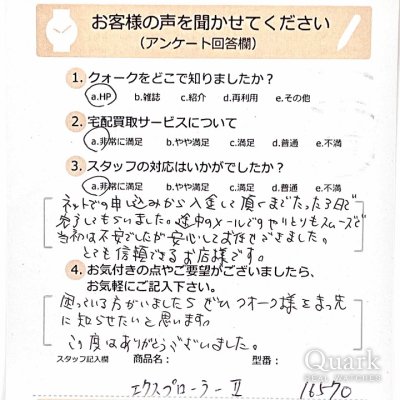 お客様の声を聞かせてください
(アンケート回答欄)
1. クォークをどこで知りましたか?
a.HP b.雑誌 c.紹介 d.再利用 e.その他
2. 宅配買取サービスについて
a.非常に満足 b.やや満足 c.満足 d.普通 e.不満
3. スタッフの対応はいかがでしたか?
a.非常に満足 b.やや満足 c.満足 d.普通 e.不満
ネットでの申し込みから入金して頂くまでたった3日で
完了してもらいました。途中のメールでのやりとりもスムーズで
当初は不安でしたが安心してお任せできました。
とても信頼できるお店様です。
4. お気付きの点やご要望がございましたら、
お気軽にご記入下さい。
困っている方がいましたらぜひクオーク様をまっ先
に知らせたいと思います。
この度はありがとうございました。
スタッフ記入欄 商品名: 型番:
エクスプローラーⅡ 16570
Quark
REAL WATCHES